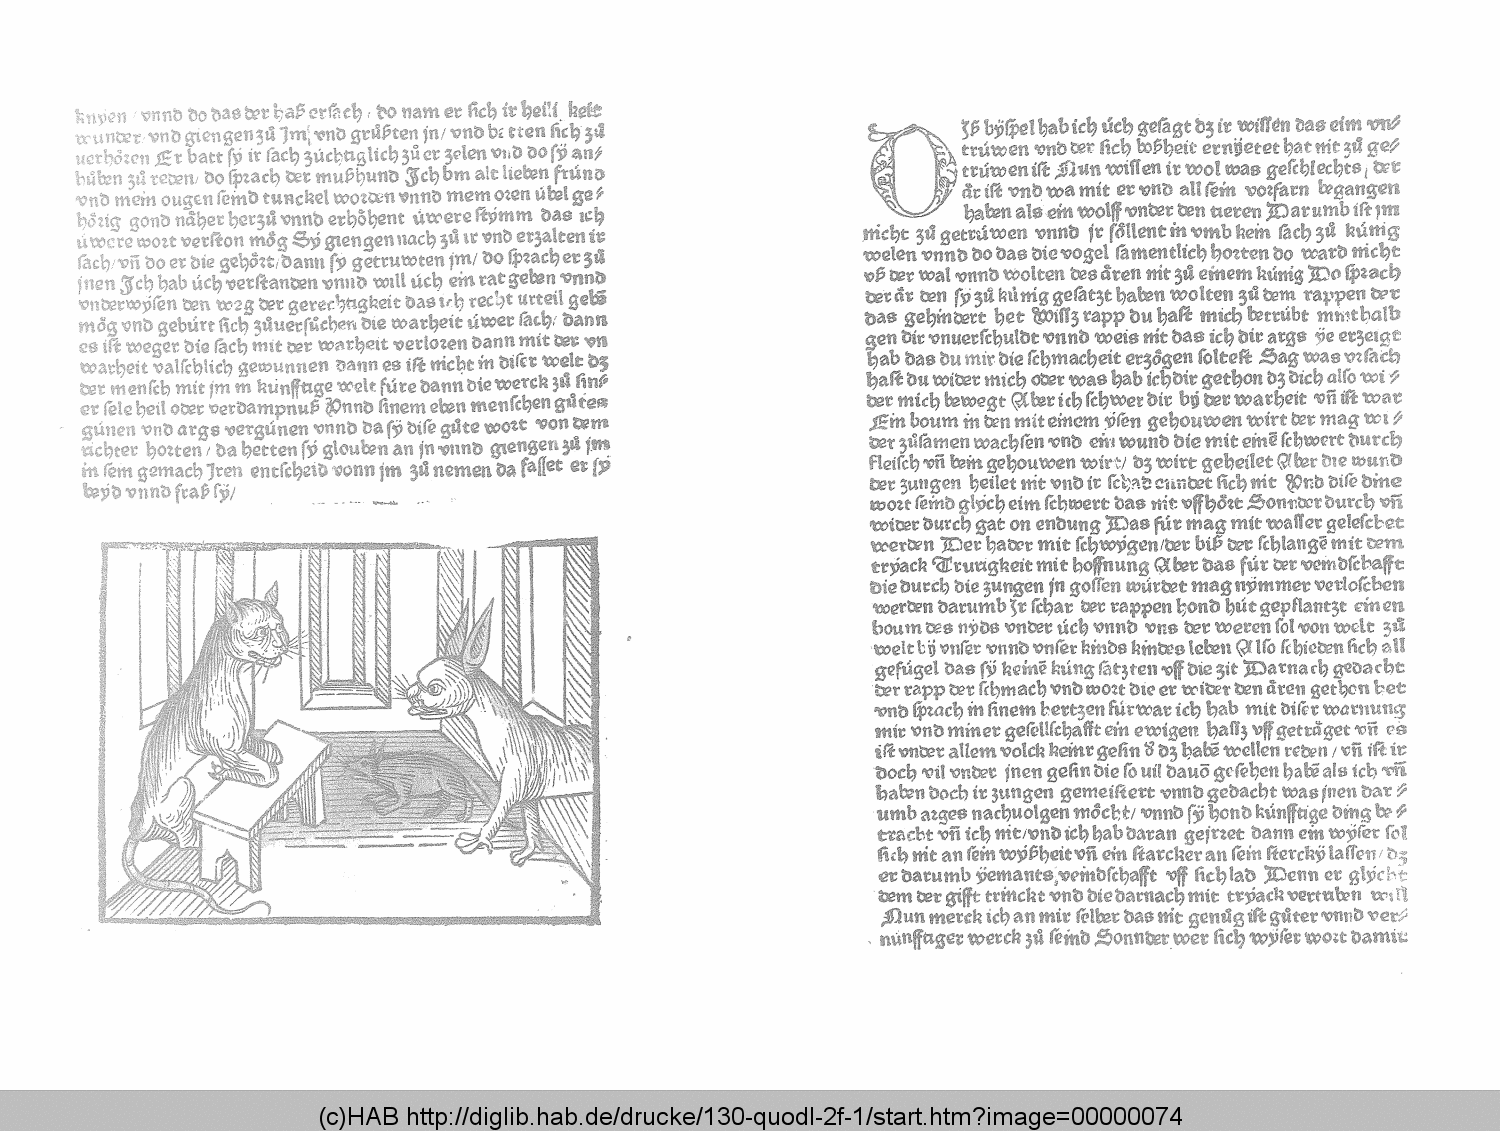 knyen / vnnd do das der haß ersach / do nam er sich ir heili keit
wunder vnd giengen zů Jm / vnd grůßten jn / vnd betten sich zů
uerhören Er batt sÿ ir sach zúchtiglich zů er zelen vnd do sÿ an⸗
hůben zů reden / do sprach der mußhund Jch bin alt lieben fründ
vnd mein ougen seind tunckel worden vnnd mein oren übel ge⸗
hörig gond näher herzů vnnd erhöhent úwere stÿmm das ich
úwere wort verston mög Sÿ giengen nach zů ir vnd erzalten ir
sach / vn̄ do er die gehört / dann sÿ getruwten jm / do sprach er zů
jnen Jch hab úch verstanden vnnd will úch ein rat geben vnnd
vnderwÿsen den weg der gerechtigkeit das ich recht urteil gebē
mög vnd gebúrt sich zůuersůchen die warheit úwer sach / dann
es ist weger die sach mit der warheit verlozen dann mit der vn
warheit valschlich gewunnen dann es ist nicht in diser welt dz
der mensch mit jm in kúnfftige welt fúre dann die werck zů sin⸗
er sele heil oder verdampnuß Vnnd sinem eben menschen gůtes
gúnen vnd args vergúnen vnnd da sÿ dise gůte wort von dem
richter horten / da hetten sÿ glouben an jn vnnd giengen zů jm
in sem gemach Jren entscheid vonn jm zů nemen da fasset er sÿ
beÿd vnnd fraß sÿ /
Dꝭ bÿspel hab ich úch gesagt dz ir wissen das eim vn⸗
trúwen vnd der sich boßheit ernÿetet hat nit zů ge⸗
trúwen ist Nun wissen ir wol was geschlechts / der
år ist vnd wa mit er vnd all sein vorfarn begangen
haben als ein wolff vnder den tieren Darumb ist jm
nicht zů getrúwen vnnd jr söllent in vmb kein sach zů kúnig
welen vnnd do das die vogel samentlich horten do ward nicht
vß der wal vnnd wolten des åren nit zů einem kúnig Do sprach
der år den sÿ zů kúnig gesatzt haben wolten zů dem rappen der
das gehindert het Wissz rapp du hast mich betrúbt mitthalb
gen dir vnuerschuldt vnnd weis nit das ich dir args ÿe erzeigt
hab das du mir die schmacheit erzögen soltest Sag was vrsach
hast du wider mich oder was hab ich dir gethon dz dich also wi⸗
der mich bewegt Aber ich schwer dir bÿ der warheit vn̄ ist war
Ein boum in den mit einem ÿsen gehouwen wirt der mag wi⸗
der zůsamen wachsen vnd ein wund die mit einē schwert durch
fleisch vn̄ bein gehouwen wirt / dz wirt geheilet Aber die wund
der zungen heilet nit vnd ir schad endet sich nit Vnd dise dine
wort seind glÿch eim schwert das nit vffhört Sonnder durch vn̄
wider durch gat on endung Das fúr mag mit wasser geleschet
werden Der hader mit schwÿgen / der biß der schlangē mit dem
trÿack Trurigkeit mit hoffnung Aber das fúr der veindschafft
die durch die zungen jn gossen wúrdet mag nÿmmer verloschen
werden darumb Jr schar der rappen hond hút gepflantzt einen
boum des nÿds vnder úch vnnd vns der weren sol von welt zů
welt bÿ vnser vnnd vnser kinds kindes leben Also schieden sich all
gefúgel das sÿ keinē kúng satzten vff die zit Darnach gedacht
der rapp der schmach vnd wort die er wider den åren gethon het
vnd sprach in sinem hertzen fúrwar ich hab mit diser warnung
mir vnd miner gesellschafft ein ewigen hassz vff geträget vn̄ es
ist vnder allem volck keinr gesin d̄ dz habē wellen reden / vn̄ ist ir
doch vil vnder jnen gesin die so uil dauō gesehen habē als ich vn̄
haben doch ir zungen gemeistert vnnd gedacht was jnen dar⸗
umb arges nachuolgen möcht / vnnd sÿ hond kúnfftige ding be⸗
tracht vn̄ ich nit / vnd ich hab daran geirret dann ein wÿser sol
sich nit an sein wÿßheit vn̄ ein starcker an sein sterckÿ lassen / dz
er darumb ÿemants veindschafft vff sich lad Denn er glÿcht
dem der gifft trinckt vnd die darnach mit trÿack vertriben will
Nun merck ich an mir selber das nit genůg ist gůter vnnd ver⸗
núnfftiger werck zů seind Sonnder wer sich wÿser wort damit
(c)HAB http://diglib.hab.de/drucke/130-quodl-2f-1/start.htm?image=00000074